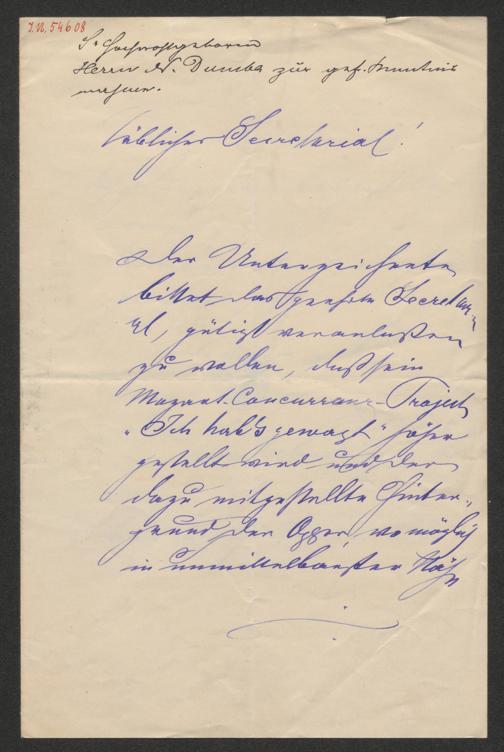 J.N. 54608
Sr Hochwohlgeboren
Herrn N. Dumba zur gef. Kenntnis
nahme.
Löbliches Secretariat!
Der Unterzeichnete
bittet das geehrte Secretari-
at, gütigst veranlaßen
zu wollen, daß sein
Mozart-Concurrenz-Project
"Ich hab's gewagt" höher
gestellt wird und der
dazu mitgestellte Hinter-
grund der Oper, womöglich
in unmittelbarster Nähe